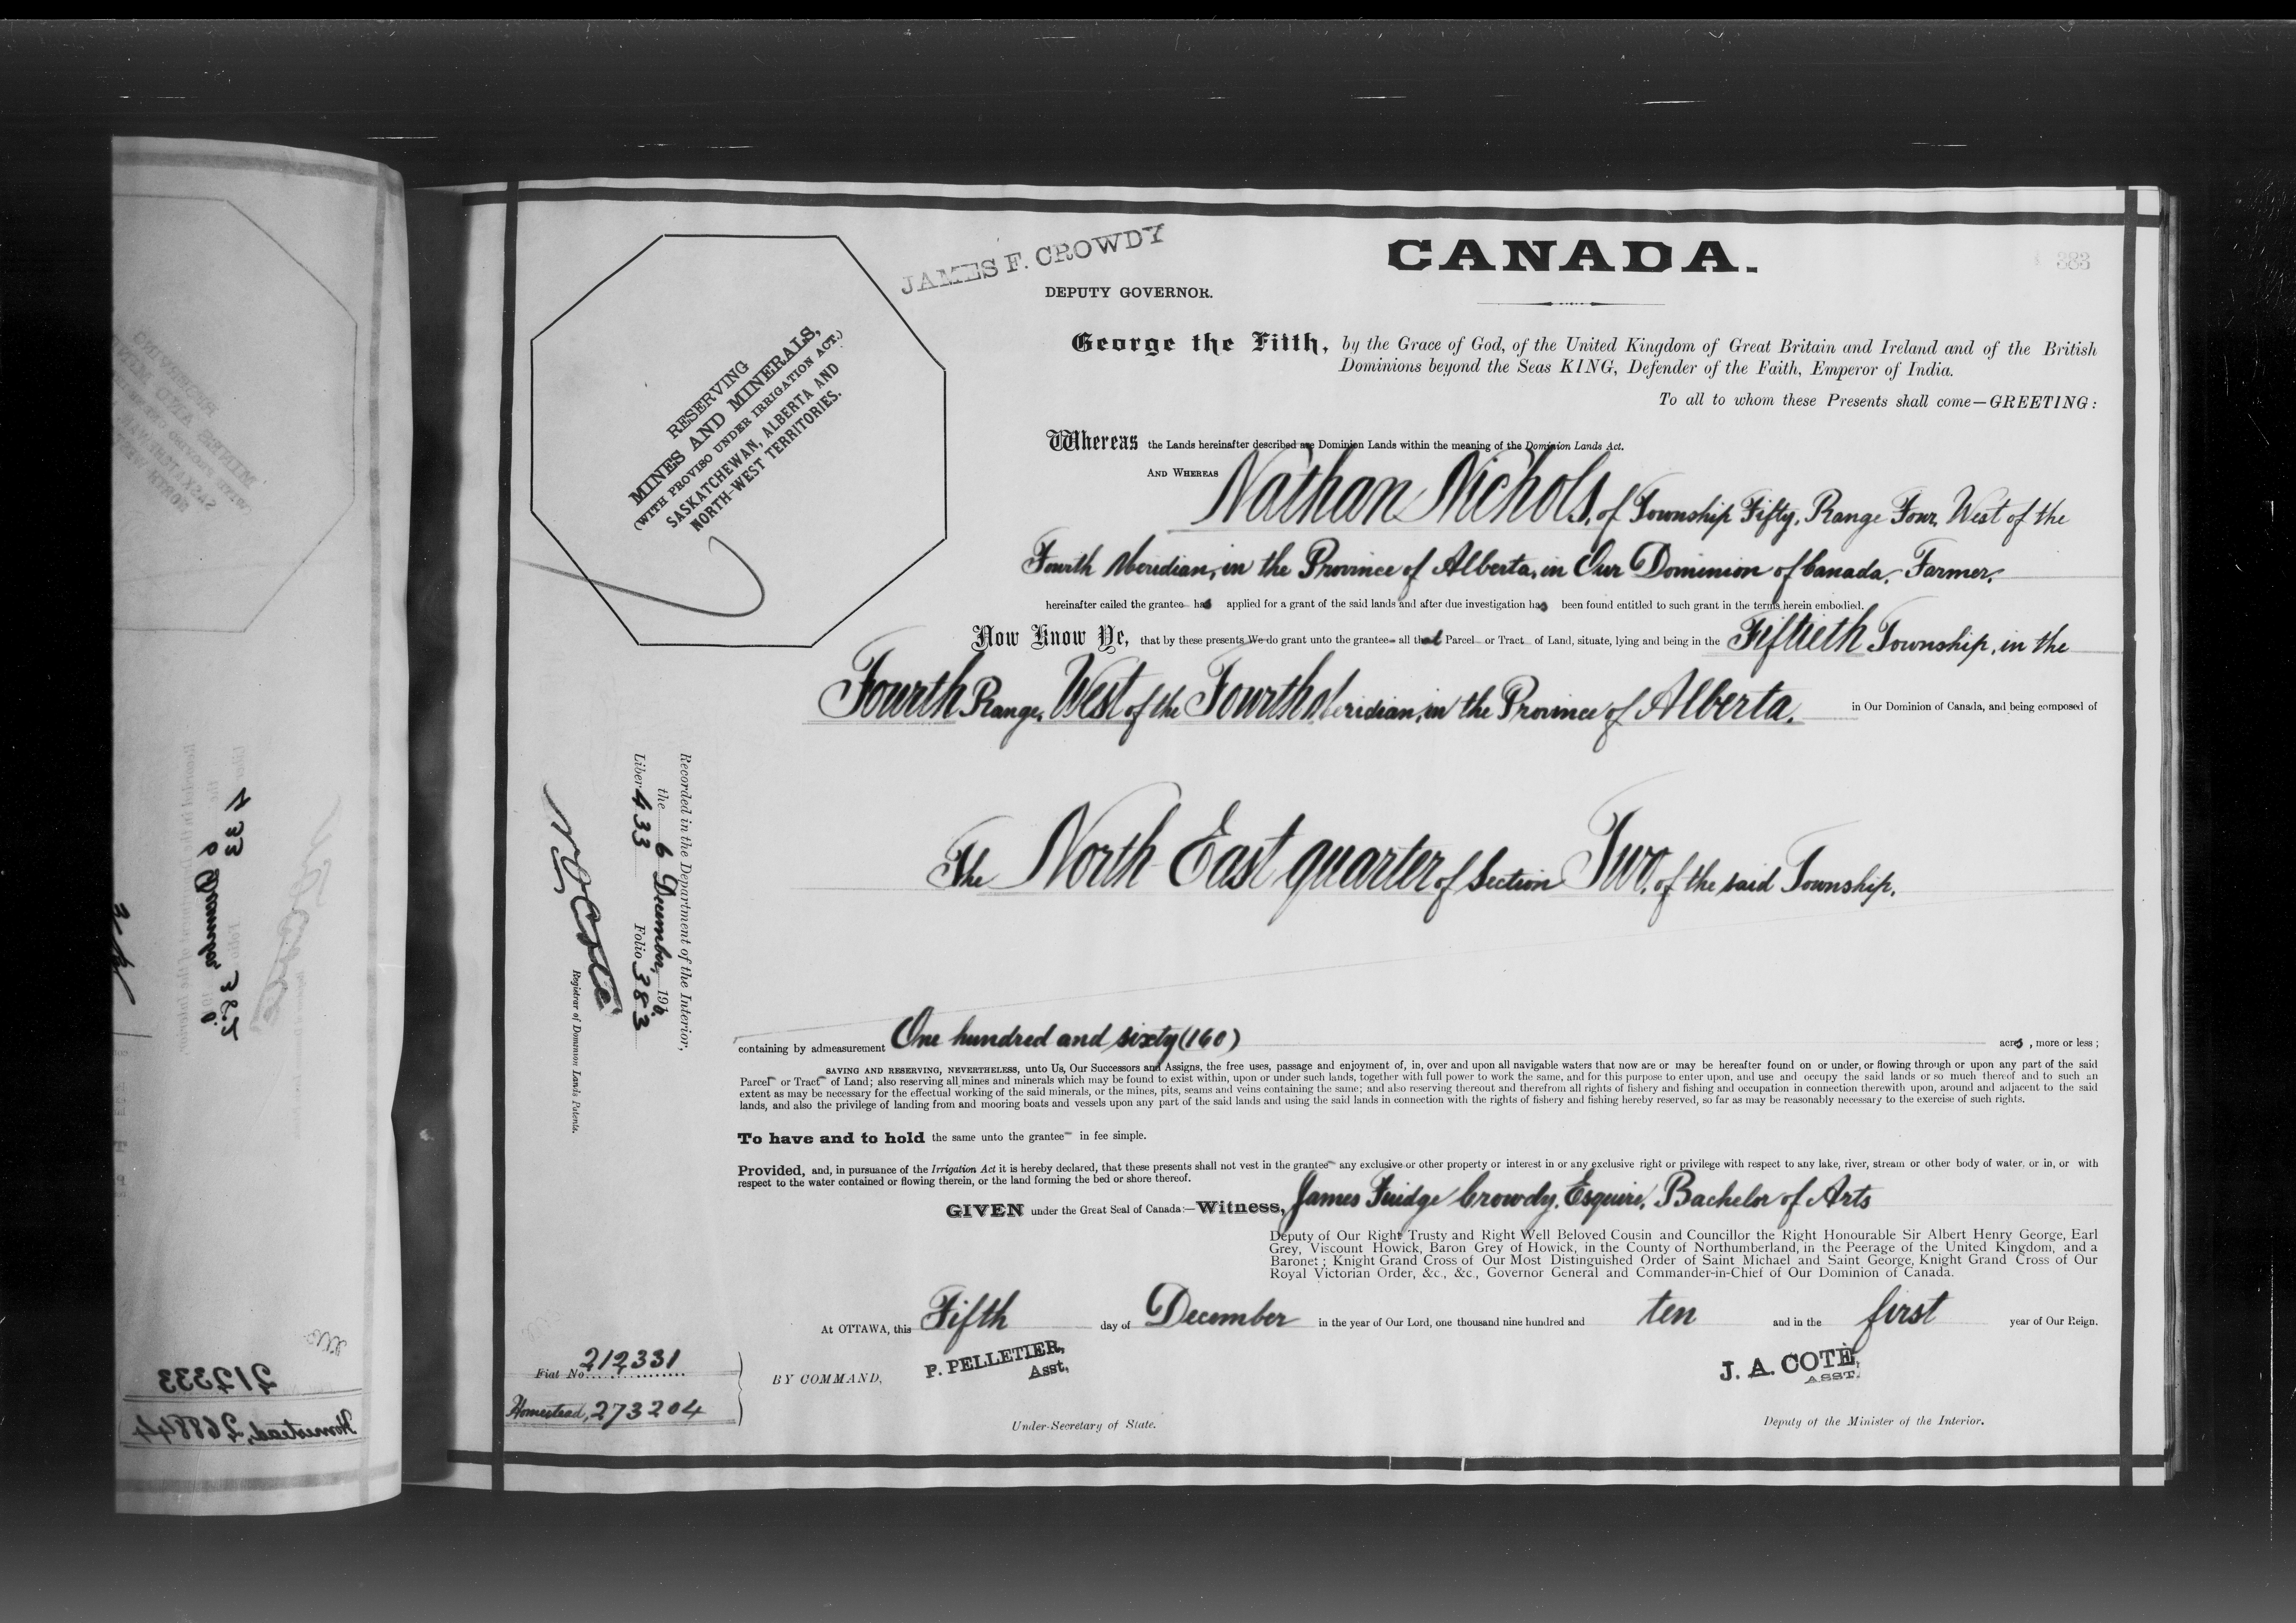 JAMES F. CROWDY
CANADA.
383
DEPUTY GOVERNOR.
RESERVING
MINES AND MINERALS,
(WITH PROVISO UNDER IRRIGATION ACT.)
SASKATCHEWAN, ALBERTA AND
NORTH-WEST TERRITORIES.
George the Fifth, by the Grace of God, of the United Kingdom of Great Britain and Ireland and of the British
Dominions beyond the Seas KING, Defender of the Faith, Emperor of India.
To all to whom these Presents shall come—GREETING:
Whereas the Lands hereinafter described are Dominion Lands within the meaning of the Dominion Lands Act.
AND WHEREAS Nathan Nichols, of Township Fifty, Range Four, West of the
Fourth Meridian, in the Province of Alberta, in Our Dominion of Canada, Farmer,
hereinafter called the grantee has applied for a grant of the said lands and after due investigation has been found entitled to such grant in the terms herein embodied.
Now Know Ye, that by these presents We do grant unto the grantee all that Parcel or Tract of Land, situate, lying and being in the Fiftieth Township, in the
Fourth Range, West of the Fourth Meridian, in the Province of Alberta, in Our Dominion of Canada, and being composed of
The North East quarter of Section Two, of the said Township,
Recorded in the Department of the Interior,
the 6 December, 1910
Liber 433 Folio 383
Registrar of Dominion Lands Patents.
containing by admeasurement One hundred and sixty (160) acres, more or less;
SAVING AND RESERVING, NEVERTHELESS, unto Us, Our Successors and Assigns, the free uses, passage and enjoyment of, in, over and upon all navigable waters that now are or may be hereafter found on or under, or flowing through or upon any part of the said
Parcel or Tract of Land; also reserving all mines and minerals which may be found to exist within, upon or under such lands, together with full power to work the same, and for this purpose to enter upon, and use and occupy the said lands or so much thereof and to such an
extent as may be necessary for the effectual working of the said minerals, or the mines, pits, seams and veins containing the same; and also reserving thereout and therefrom all rights of fishery and fishing and occupation in connection therewith upon, around and adjacent to the said
lands, and also the privilege of landing from and mooring boats and vessels upon any part of the said lands and using the said lands in connection with the rights of fishery and fishing hereby reserved, so far as may be reasonably necessary to the exercise of such rights.
To have and to hold the same unto the grantee in fee simple.
Provided, and, in pursuance of the Irrigation Act it is hereby declared, that these presents shall not vest in the grantee any exclusive or other property or interest in or any exclusive right or privilege with respect to any lake, river, stream or other body of water, or in, or with
respect to the water contained or flowing therein, or the land forming the bed or shore thereof.
GIVEN under the Great Seal of Canada:—Witness, James Fuidge Crowdy, Esquire, Bachelor of Arts
Deputy of Our Right Trusty and Right Well Beloved Cousin and Councillor the Right Honourable Sir Albert Henry George, Earl
Grey, Viscount Howick, Baron Grey of Howick, in the County of Northumberland, in the Peerage of the United Kingdom, and a
Baronet; Knight Grand Cross of Our Most Distinguished Order of Saint Michael and Saint George, Knight Grand Cross of Our
Royal Victorian Order, &c., &c., Governor General and Commander-in-Chief of Our Dominion of Canada.
At OTTAWA, this Fifth day of December in the year of Our Lord, one thousand nine hundred and ten and in the first year of Our Reign.
Fiat No. 212331
Homestead, 273204
BY COMMAND,
P. PELLETIER,
Asst,
Under-Secretary of State.
J. A. COTÉ,
ASST.
Deputy of the Minister of the Interior.
212333
Homestead, 268844